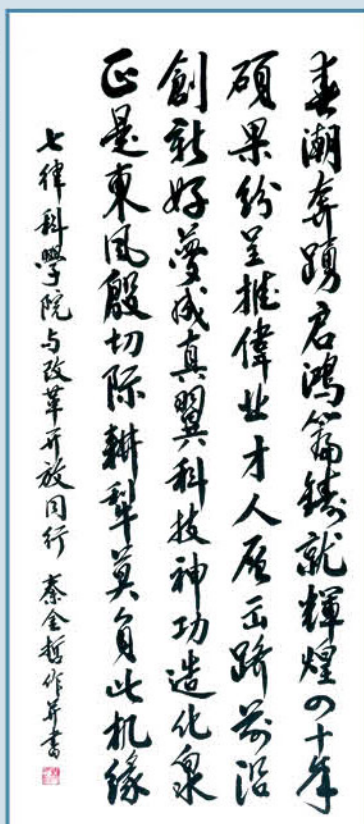 春潮奔踴启鴻篇鑄就輝煌四十年
碩果紛呈推偉业才人屡出躋前沿
創新好夢成真翼科技神功造化泉
正是東風殷切际耕犁莫負此机緣
七律科學院与改革开放同行 秦金哲作并書